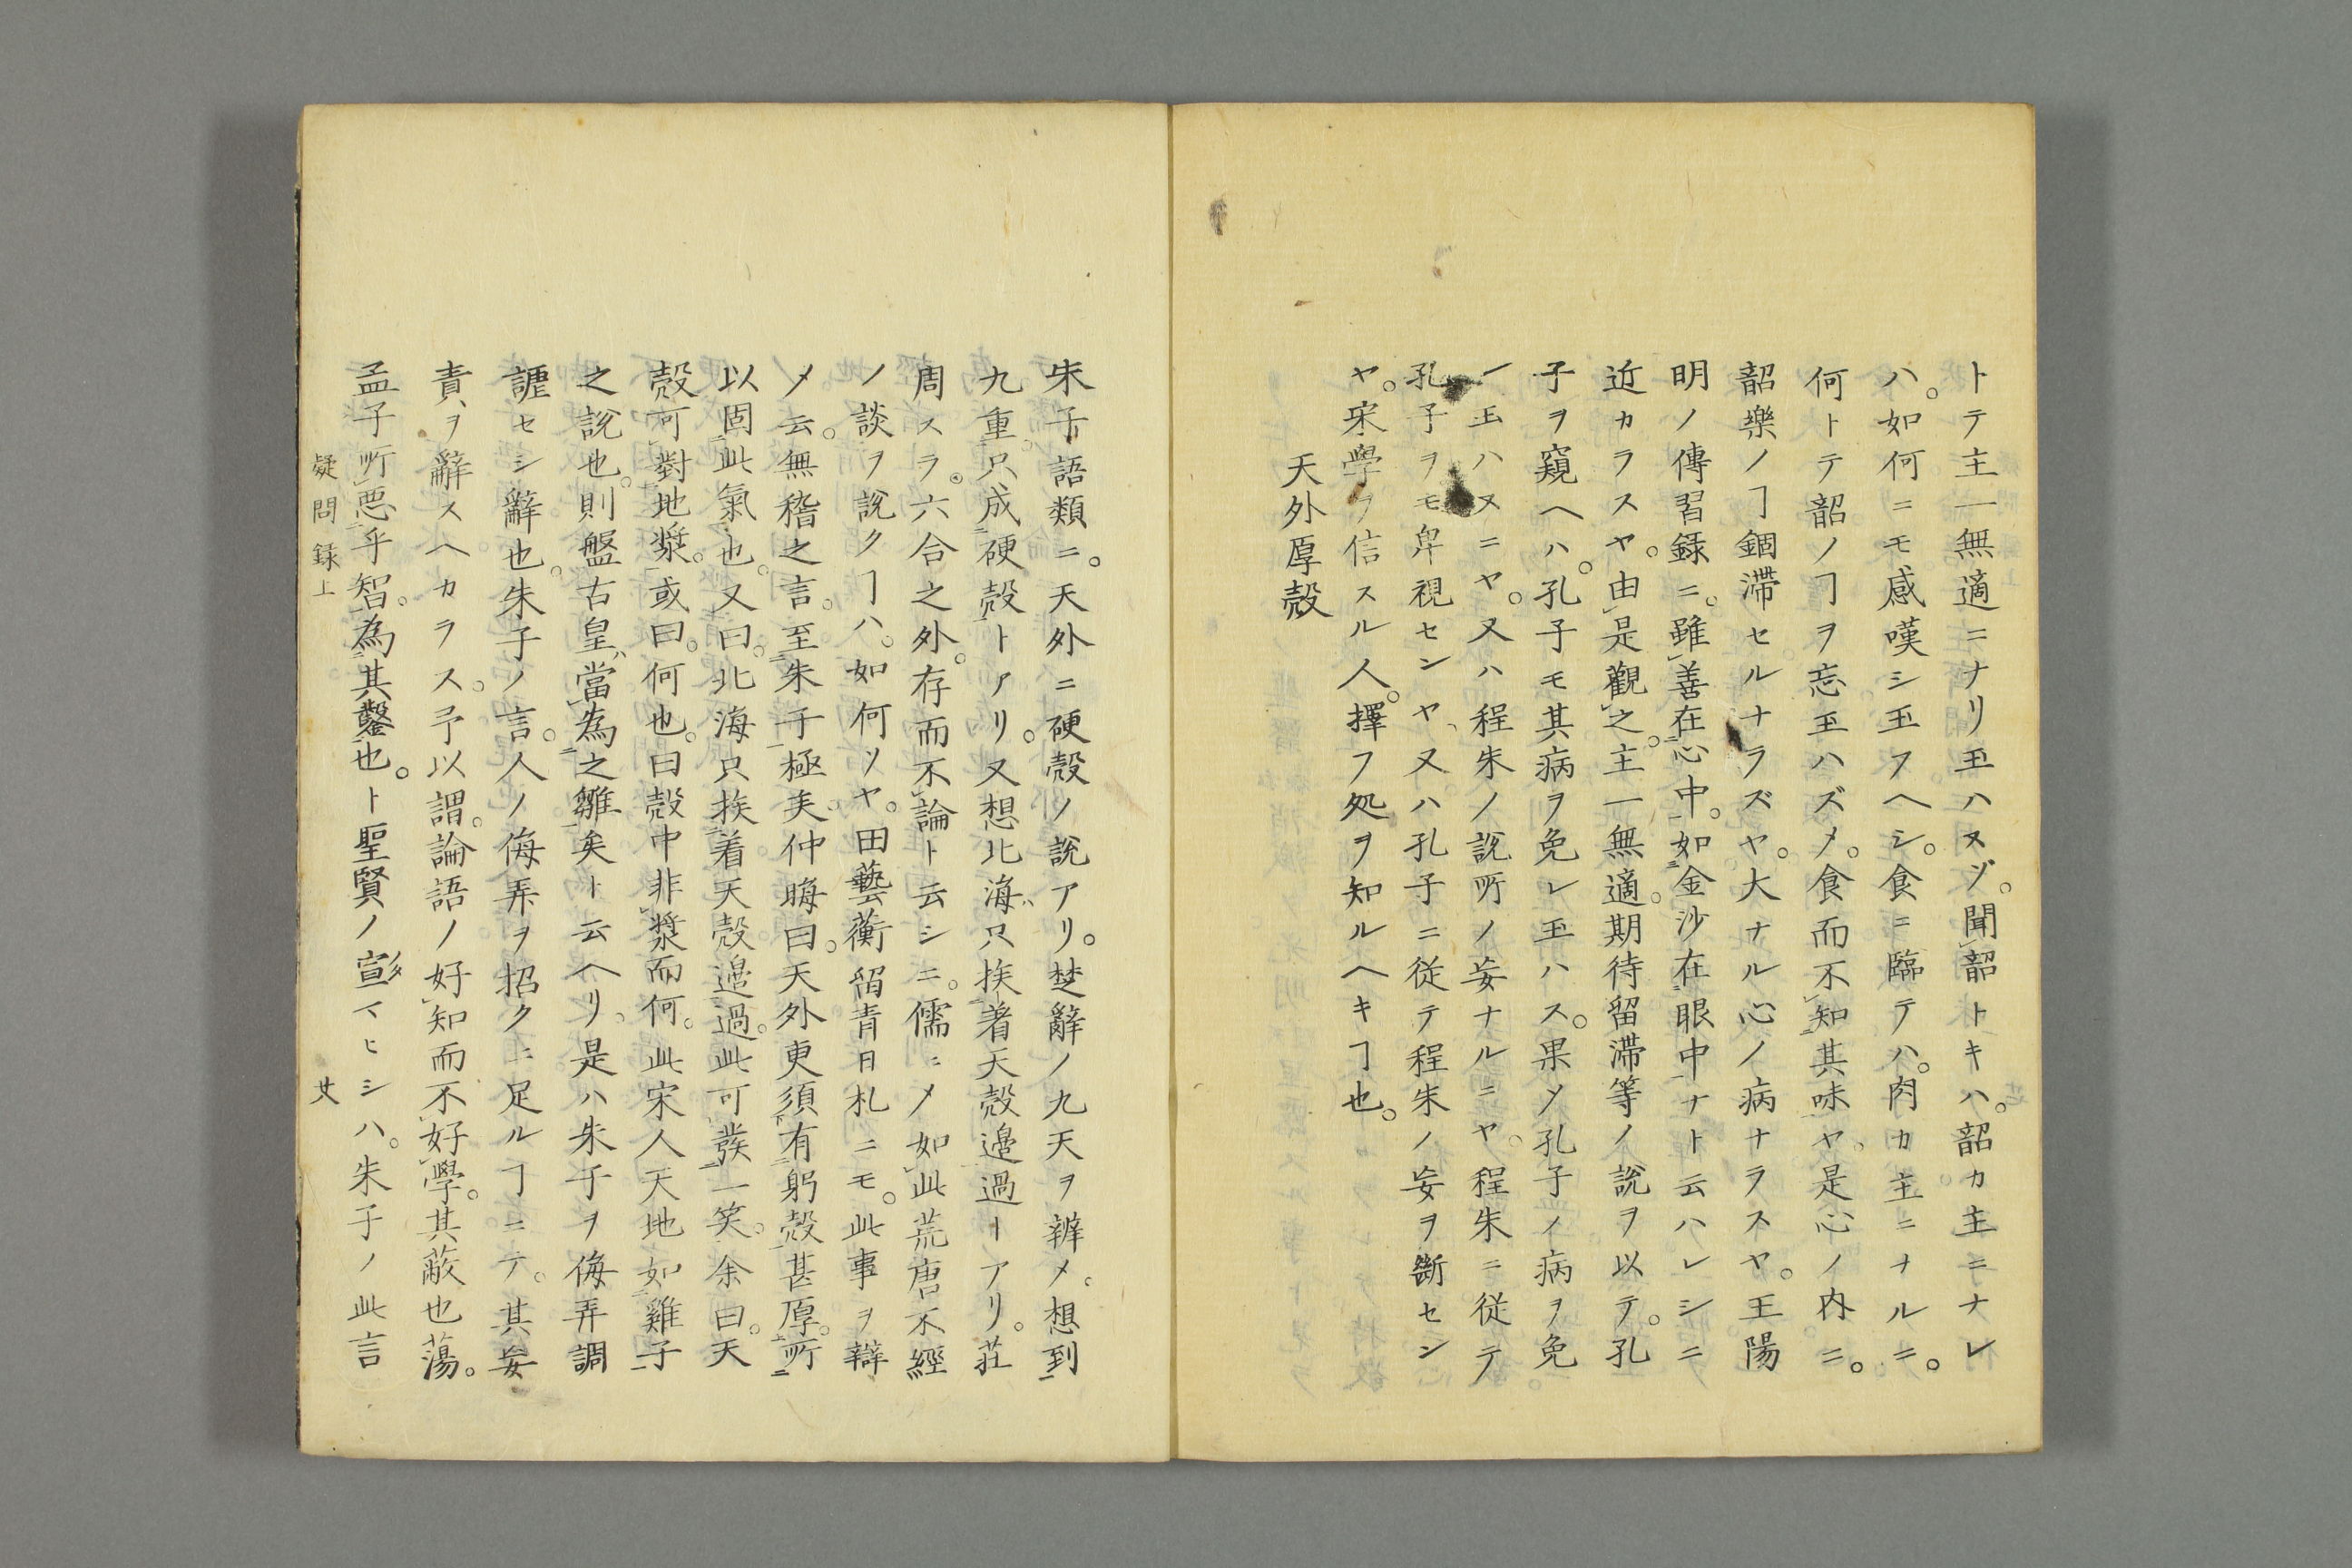 トテ主一無適ニナリ玉ハヌゾ。聞韶トキハ。韶カ主ニナレ
ハ。如何ニモ感嘆シ玉フヘシ。食ニ臨テハ。肉カ主ニナルニ。
何トテ韶ノヿヲ忘玉ハズメ。食而不知其味ヤ。是心ノ内ニ。
韶樂ノヿ錮滯セルナラズヤ。大ナル心ノ病ナラスヤ。王陽
明ノ傳習録ニ。雖善在心中。如金沙在眼中ナト云ハレシニ
近カラスヤ。由是觀之。主一無適。期待留滯等ノ説ヲ以テ。孔
子ヲ窺ヘハ。孔子モ其病ヲ免レ玉ハス。果メ孔子ノ病ヲ免
レ玉ハヌニヤ。又ハ程朱ノ説所ノ妄ナルニヤ。程朱ニ従テ
孔子ヲモ卑視センヤ、又ハ孔子ニ従テ程朱ノ妄ヲ斷セン
ヤ。宋學ヲ信スル人。擇フ処ヲ知ルヘキヿ也。
天外厚殻
朱子語類ニ。天外ニ硬殻ノ說アリ。楚辭ノ九天ヲ辨メ。想到
九重。只成硬殻トアリ。又想北海只挨着天殻邊過ーアリ。荘
周スラ。六合之外。存而不論ト云シニ。儒ニメ如此荒唐不經
ノ談ヲ說クヿハ。如何ソヤ。田藝蘅留青日札ニモ。此事ヲ辯
メ云。無稽之言。至朱子極矣。仲晦曰。天外更須有躬殻甚厚。所
以固此氣也。又曰。北海只挨着天殻邉過。此可發一笑。余曰。天
殻可對地漿。或曰。何也。曰殻中非漿而何。此宋人天地如雞子
之說也。則盤古皇。當為之雛矣ト云ヘリ。是ハ朱子ヲ侮弄調
謔セシ辭也。朱子ノ言。人ノ侮弄ヲ招クニ足ルヿニテ。其妄
責ヲ辭スヘカラス。予以謂。論語ノ好知而不好學。其蔽也蕩。
孟子所惡乎智。為其鑿也。ト聖賢ノ宣ヒシハ。朱子ノ此言
疑問録上